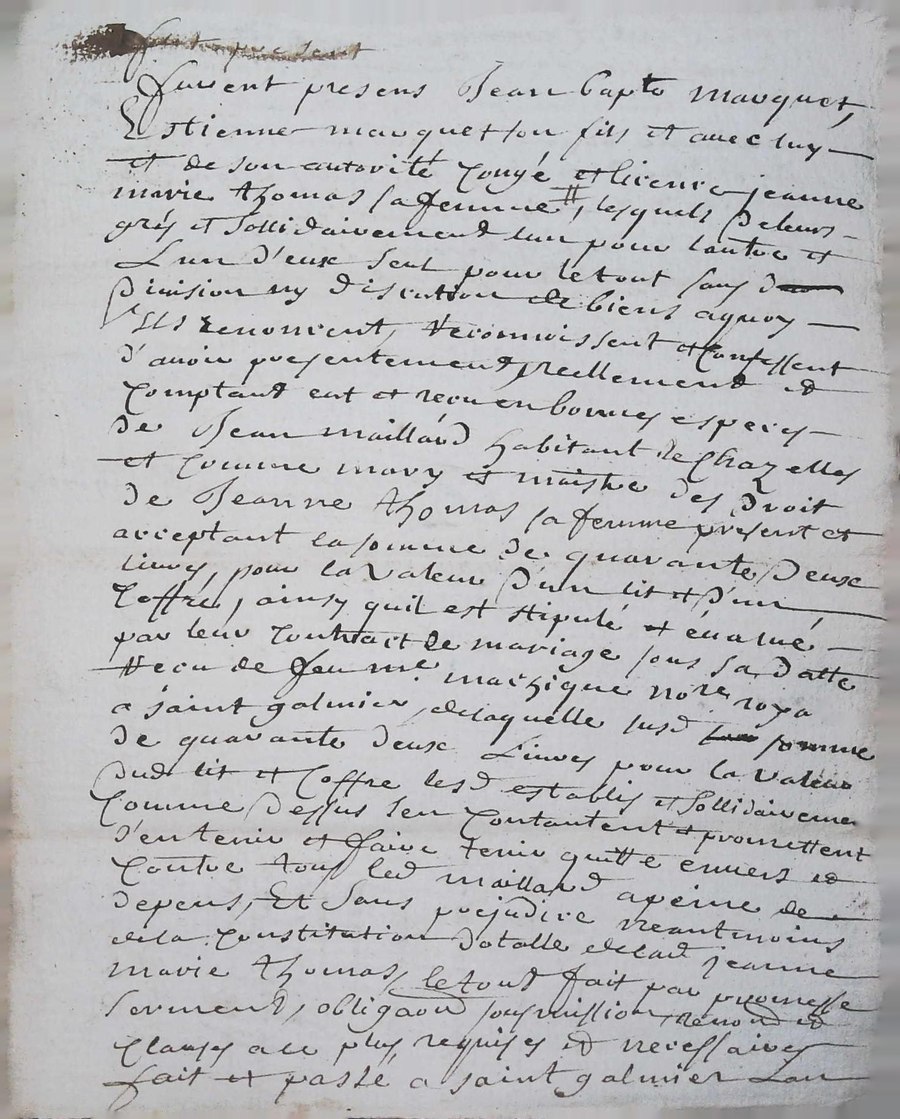 furent presens
furent presens Jean bapte marquet,
Estienne marquet son fils et avec luy
et de son autorité congé et licence jeanne
marie thomas sa femme #, lesquels de leurs
grés et sollidairement lun pour lautre et
Lun d'eux seul pour le tout sans
Division ny discution de biens aquoy
Ils renoncent, reconnoissent et Confessent
d'avoir presentement, reellement et
Comptant eut et reçu en bonnes especes
de Jean maillard habitant de Chazelles
et Comme mary et maistre des Droit
de Jeanne thomas sa femme present et
acceptant la somme de quarante Deux
livres, pour la valeur D'un lit et D'un
Coffre, ainsy quil est stipulé et évalué
par leur Contract de mariage sous sa Datte
Recu de feu me mazzique nore roya
a saint galmier, de laquelle susd somme
de quarante deux Livres pour la valeur
dud lit et Coffre lesd establis et sollidairement
Comme Dessus sen Contantent et promettent
d'en tenir et faire tenir quitte envers et
Contre tous led maillard apeine de
depens, Et sans prejudice neantmoins
de la Constitution dotalle de lad jeanne
marie thomas, le tout fait par promesse
serment, obligaon soumission, renon et
Clauses a ce plus requises et necessaires
fait et passé a saint galmier Lan